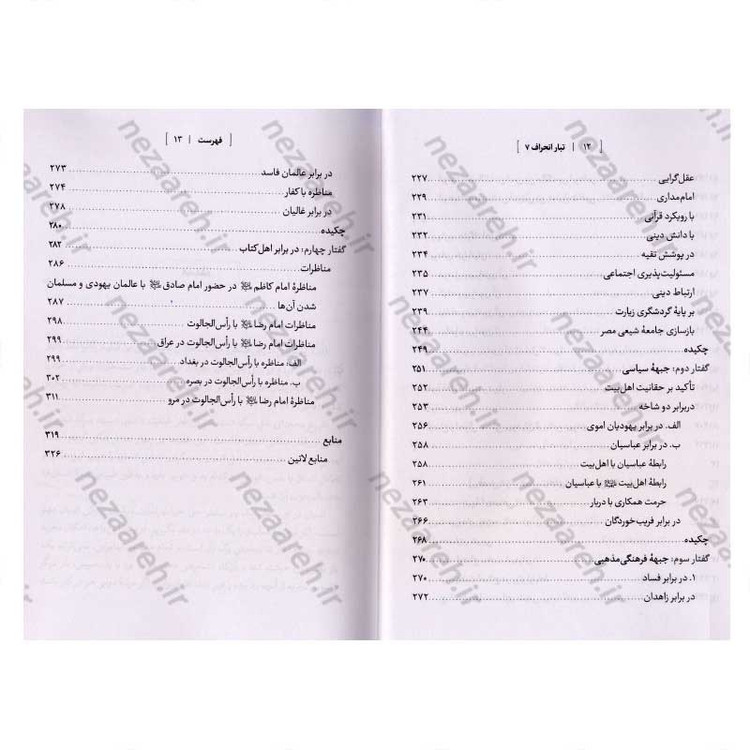 [ ۱۲ | تبار انحراف ۷ ]
عقل‌گرایی ۲۲۷
امام‌مداری ۲۲۹
با رویکرد قرآنی ۲۳۱
با دانش دینی ۲۳۲
در پوشش تقیه ۲۳۴
مسئولیت‌پذیری اجتماعی ۲۳۵
ارتباط دینی ۲۳۷
بر پایهٔ گردشگری زیارت ۲۳۹
بازسازی جامعهٔ شیعی مصر ۲۴۴
چکیده ۲۴۹
گفتار دوم: جبههٔ سیاسی ۲۵۱
تأکید بر حقانیت اهل‌بیت ۲۵۲
دربرابر دو شاخه ۲۵۳
الف. در برابر یهودیان اموی ۲۵۷
ب. در برابر عباسیان ۲۵۸
رابطهٔ عباسیان با اهل‌بیت ۲۵۸
رابطهٔ اهل‌بیت با عباسیان ۲۶۱
حرمت همکاری با دربار ۲۶۳
در برابر فریب‌خوردگان ۲۶۶
چکیده ۲۶۸
گفتار سوم: جبههٔ فرهنگی‌مذهبی ۲۷۰
۱. در برابر فساد ۲۷۰
در برابر زاهدان ۲۷۲
[ فهرست | ۱۳ ]
در برابر عالمان فاسد ۲۷۳
مناظره با کفار ۲۷۴
در برابر غالیان ۲۷۸
چکیده ۲۸۰
گفتار چهارم: در برابر اهل‌کتاب ۲۸۲
مناظرات ۲۸۶
مناظرهٔ امام کاظم در حضور امام صادق با عالمان یهودی و مسلمان
شدن آن‌ها ۲۸۷
مناظرات امام رضا با رأس‌الجالوت ۲۹۸
مناظرات امام رضا با رأس‌الجالوت در عراق ۲۹۹
الف: مناظره با رأس‌الجالوت در بغداد ۲۹۹
ب. مناظره با رأس‌الجالوت در بصره ۳۰۲
مناظرهٔ امام رضا با رأس‌الجالوت در مرو ۳۱۱
منابع ۳۱۹
منابع لاتین ۳۲۶
nezaareh.ir